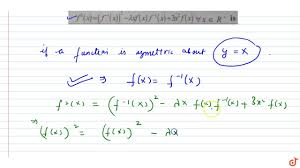 f²(x) = (f⁻¹(x))² - λx f(x) f⁻¹(x) + 3x² f(x) ∀ x ∈ R
if a function is symettric about y = x
✓ ⇒ f(x) = f⁻¹(x)
f²(x) = (f⁻¹(x))² - λx f(x) f⁻¹(x) + 3x² f(x)
⇒ (f(x))² = (f(x))² - λx